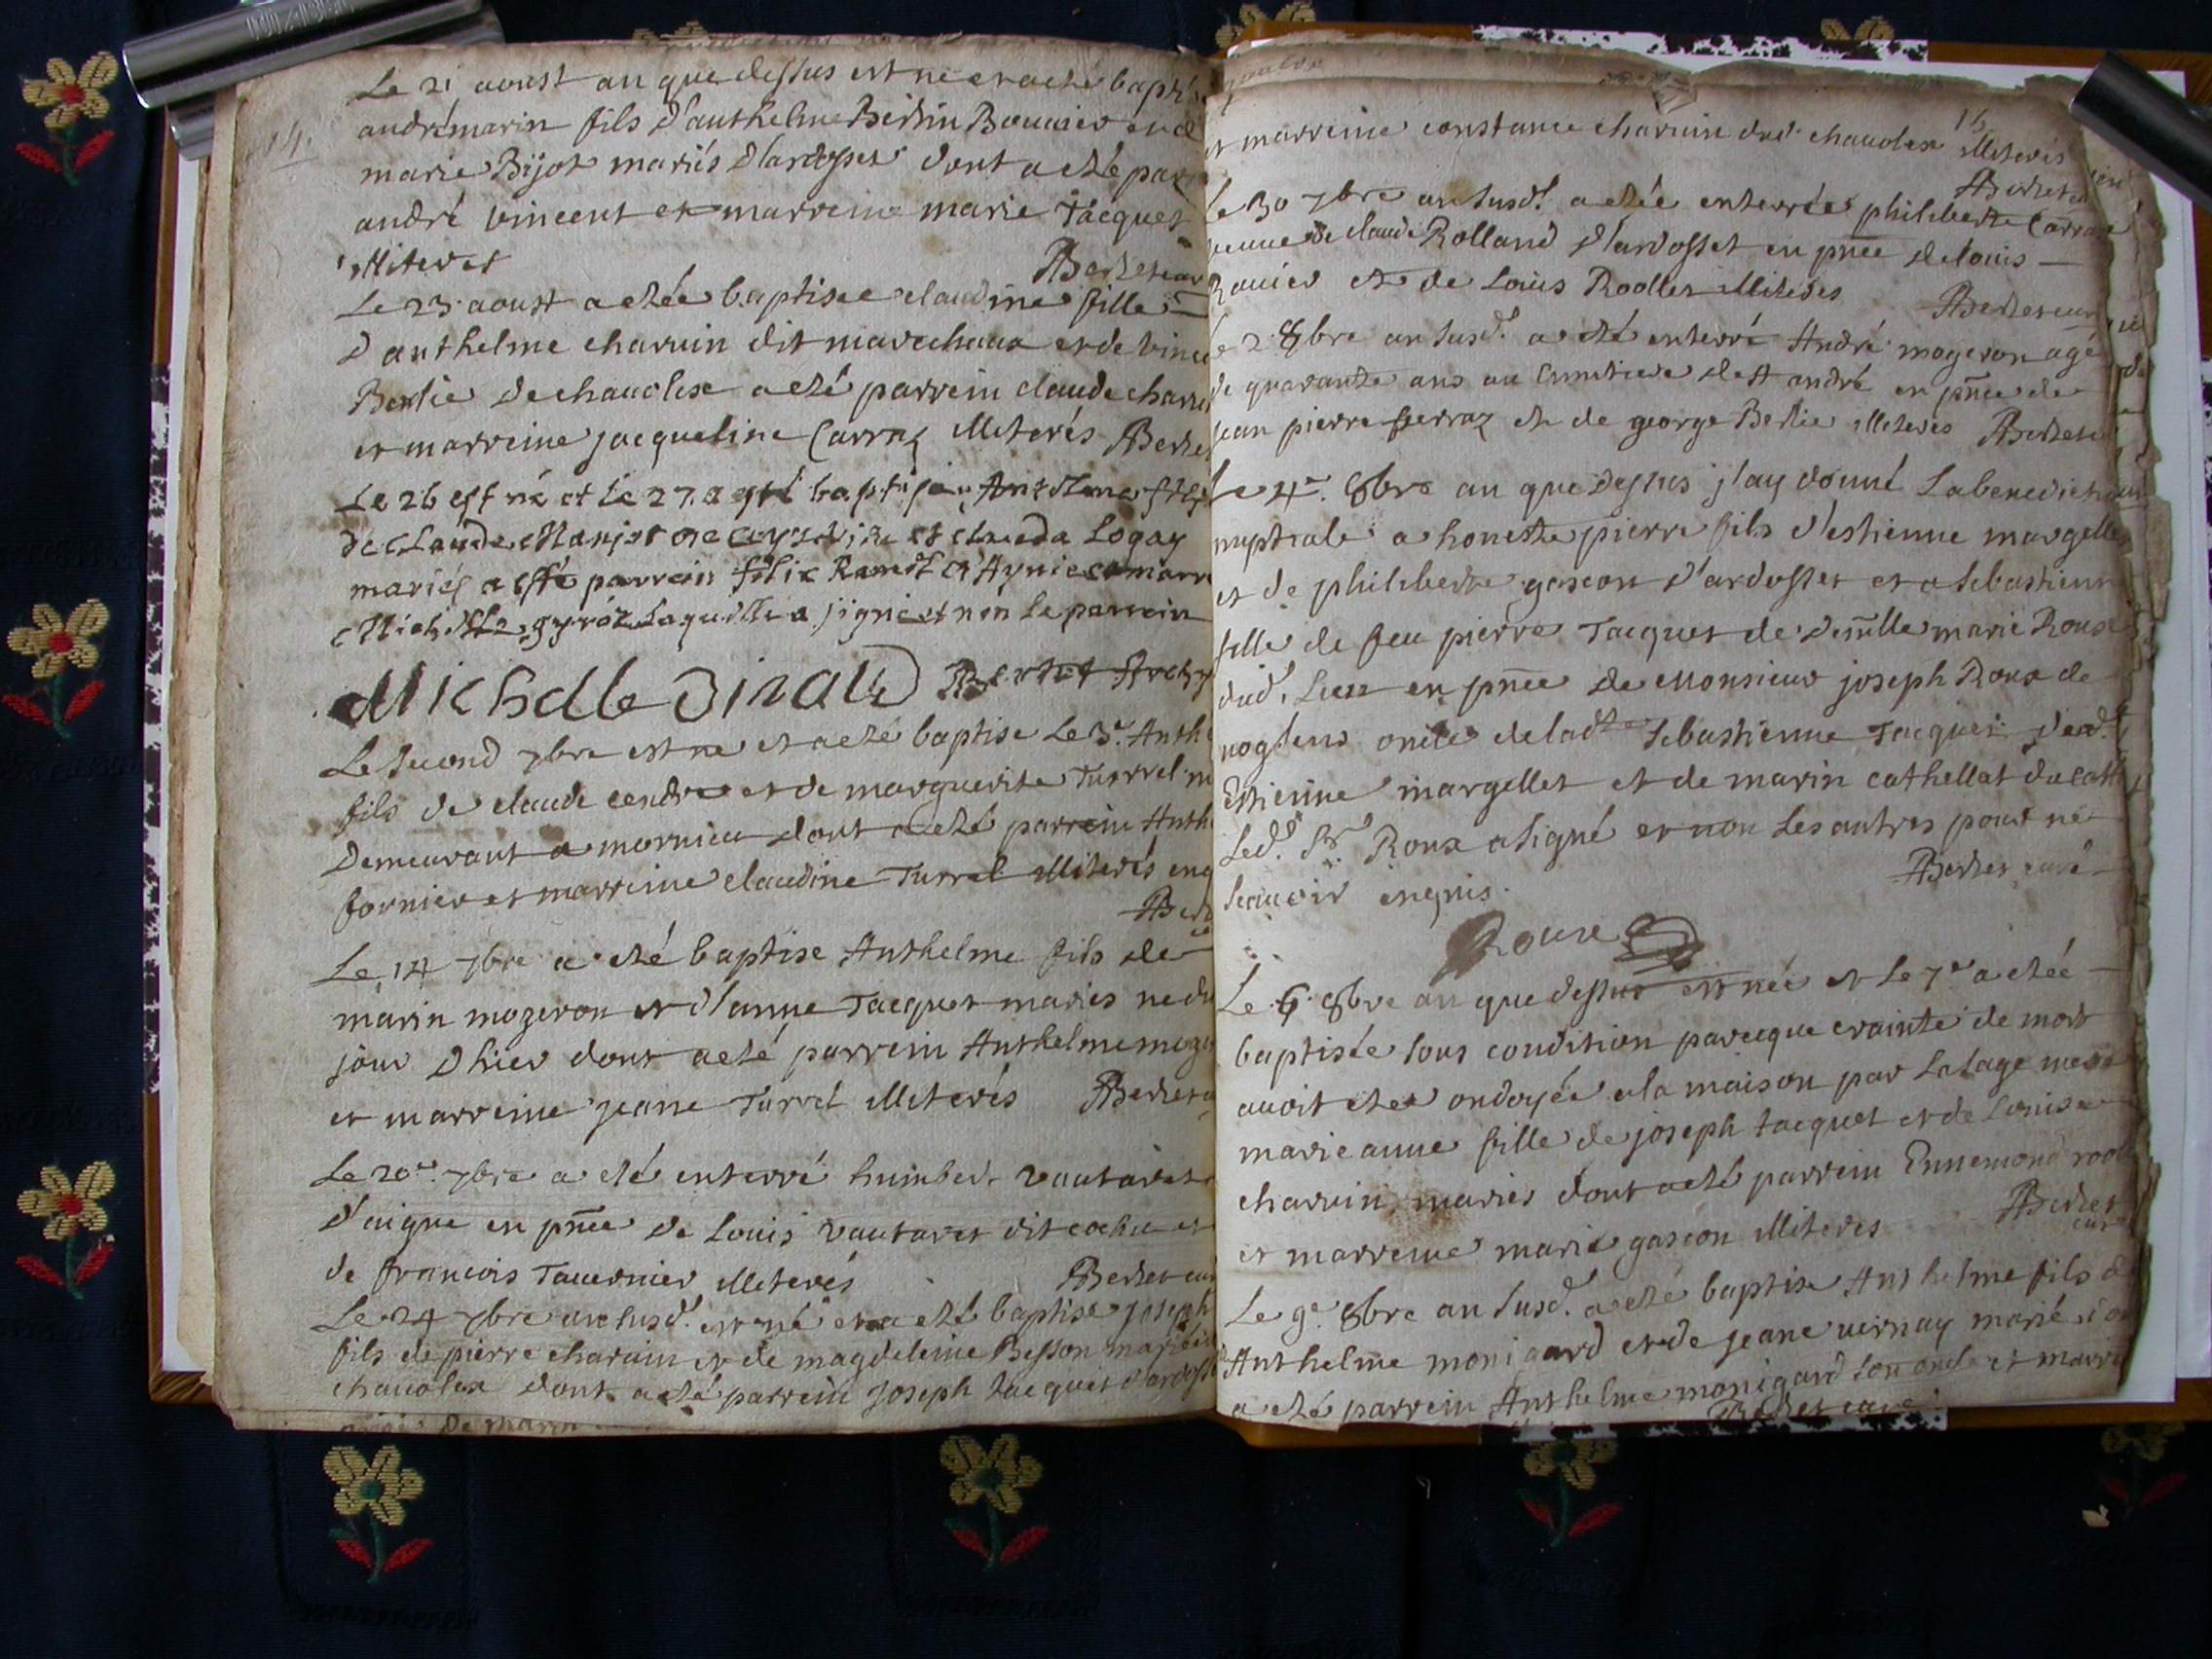 14.
Le 21 aoust an que dessus est né et a eté bapt
andré marin fils d'anthelme Berlin Bouuier et de
marie Bijot mariés d'ardosset dont a eté par
andré vincent et marreine marie Tacquet
illiteres Berzet curé
Le 23 aoust a etée baptisee claudine fille
d'anthelme charuin dit marechaux et de vinc
Berlie de chauolex a eté parrein claude charui
et marreine jacqueline Carraz illiterés Berzet
Le 26 est né et le 27 a esté baptisé Anthelme fils
de Claude et de Clauda Logay
mariés a esté parrain félix et marr
laquelle a signé et non le parrain
Michelle
Le second 7bre est né et a eté baptise Le 3e. Anth
fils de claude cendre et de marguerite Turrel m
demeurant a mornieu dont a eté parrein Anth
fornier et marreine claudine Turrel illiterés enq
Berz
Le 14 7bre a eté baptise Anthelme fils de
marin mogeron et d'anne Tacquet mariés ne du
jour d'hier dont a eté parrein Anthelme moge
et marreine jeane Turrel illiterés Berzet c
Le 20e 7bre a eté enterré humbert vautaret
d'aigne en pnce de Louis vautaret dit cochu et
de francois Tauernier illiterés Berzet cur
Le 24 7bre an susd. est né et a eté baptise Joseph
fils de pierre charuin et de magdeleine Besson mariés
chauolex dont a eté parrein Joseph tacquet d'ardoss
15
et marreine constance charuin dud. chauolex illiterés
Berzet cu
Le 30 7bre an susd. a etée enterrée philiberte Carraz
veuue de claude Rolland d'ardosset en pnce de louis
Rouier et de Louis Roollet illiteres Berzet curé
Le 2 8bre an susd. a eté enterré André mogeron agé
de quarante ans au Cimitiere de st andré en pnce de
jean pierre ferraz et de george Berlie illiteres Berzet c
Le 4e. 8bre an que dessus j'ay donné La benediction
nuptiale a honeste pierre fils d'estienne margellet
et de philiberte gascon d'ardosset et a sebastienne
fille de feu pierre Tacquet de demlle marie Roux
dud. Lieu en pnce de Monsieur joseph Roux de
oncle de ladte sebastienne Tacquet, dud.
Estienne margellet et de marin cathellat du
Led. Sr. Roux a signé et non Les autres pour ne
scauoir enquis. Berzet curé
Roux
Le 6 8bre an que dessus est née et Le 7e a etée
baptisée sous condition parceque crainte de mort
auoit etee ondoyée a la maison par La sage mere
marie anne fille de joseph tacquet et de Louise
charuin, mariés dont a eté parrein Ennemond rooll
et marreine marie gascon illiteres Berzet
curé
Le 9e. 8bre an susd. a eté baptise Anthelme fils d
Anthelme monigard et de jeane uernay marié, d
a eté parrein Anthelme monigard son oncle et marre
Berzet curé